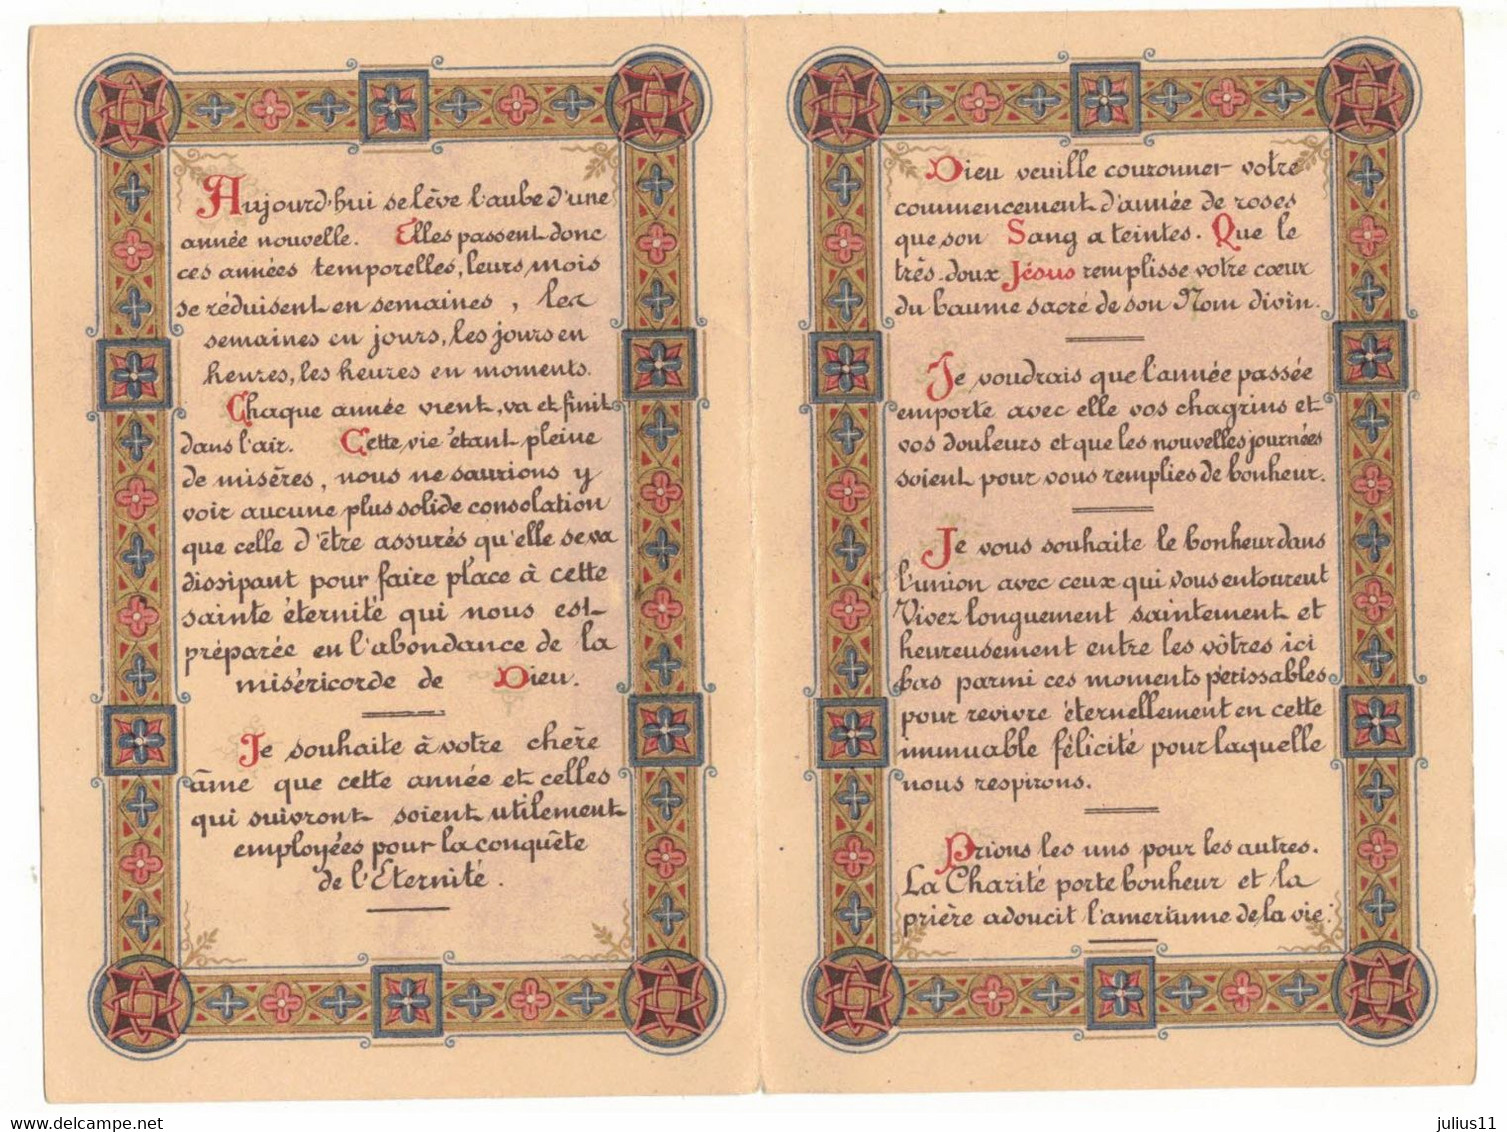 Aujourd'hui se lève l'aube d'une
année nouvelle. Elles passent donc
ces années temporelles, leurs mois
se réduisent en semaines, les
semaines en jours, les jours en
heures, les heures en moments.
Chaque année vient, va et finit
dans l'air. Cette vie étant pleine
de misères, nous ne saurions y
voir aucune plus solide consolation
que celle d'être assurés qu'elle se va
dissipant pour faire place à cette
sainte éternité qui nous est
préparée en l'abondance de la
miséricorde de Dieu.
Je souhaite à votre chère
âme que cette année et celles
qui suivront soient utilement
employées pour la conquête
de l'Eternité.
Dieu veuille couronner votre
commencement d'année de roses
que son Sang a teintes. Que le
très-doux Jésus remplisse votre cœur
du baume sacré de son Nom divin.
Je voudrais que l'année passée
emporte avec elle vos chagrins et
vos douleurs et que les nouvelles journées
soient pour vous remplies de bonheur.
Je vous souhaite le bonheur dans
l'union avec ceux qui vous entourent
Vivez longuement saintement et
heureusement entre les vôtres ici
bas parmi ces moments périssables
pour revivre éternellement en cette
immuable félicité pour laquelle
nous respirons.
Prions les uns pour les autres.
La Charité porte bonheur et la
prière adoucit l'amertume de la vie.
www.delcampe.net
julius11